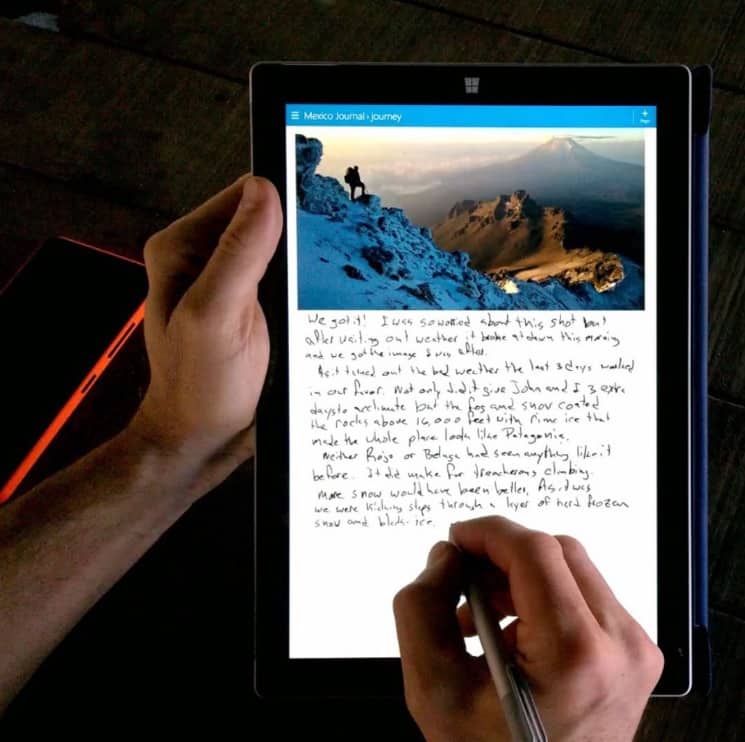 Mexico Journal › journey
We got it! I was so worried about this shot but
after waiting out weather it broke at dawn this morning
and we got the image I was after.
As it turned out the bad weather the last 3 days worked
in our favor. Not only did it give John and I 3 extra
days to acclimate but the fog and snow coated
the rocks above 16,000 feet with rime ice that
made the whole place look like Patagonia.
Neither Rojo or had seen anything like it
before. It did make for treacherous climbing.
more snow would have been better. As it was
we were kicking steps through a layer of hard frozen
snow and black ice.